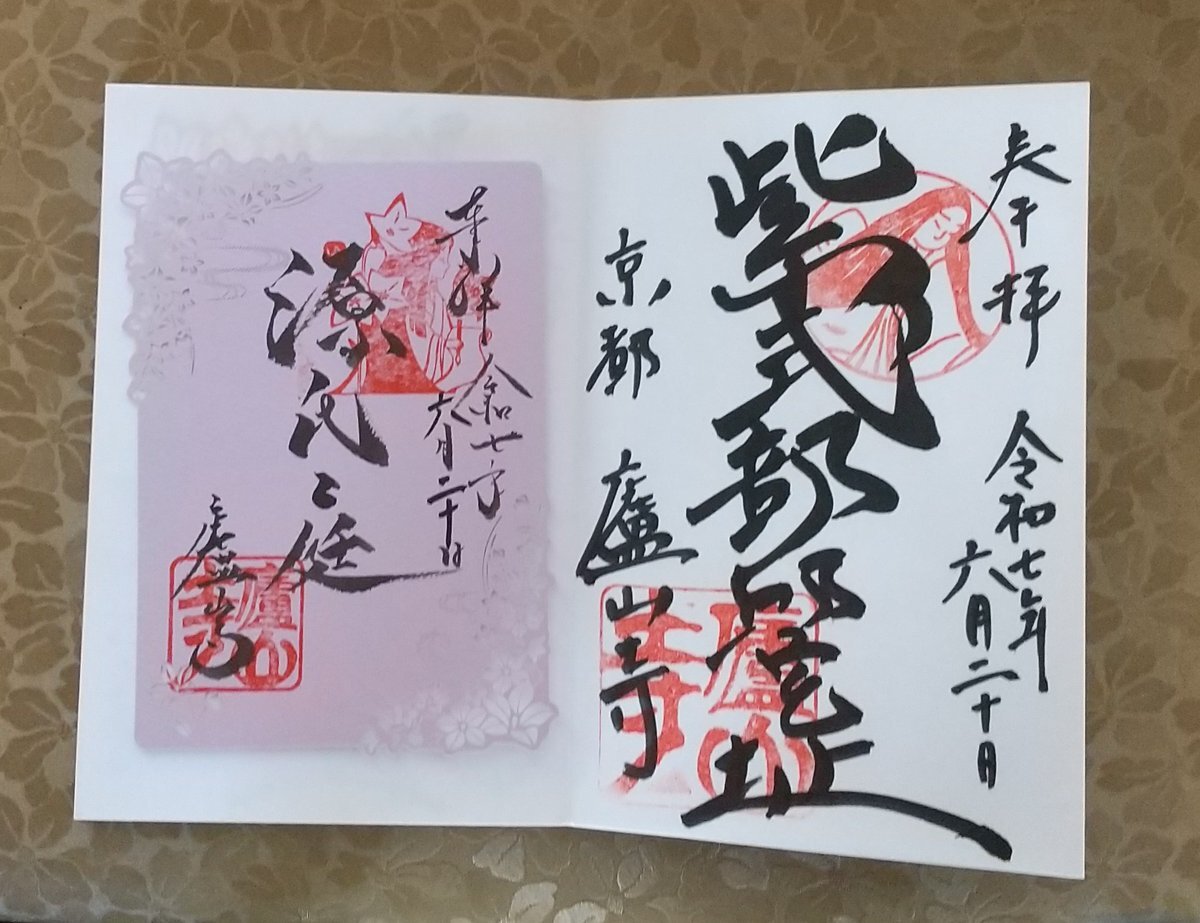 奉拝
令和七年
六月二十日
紫式部邸宅址
京都 廬山寺
廬山寺
奉拝
令和七年
六月二十日
源氏之庭
廬山寺
廬山寺